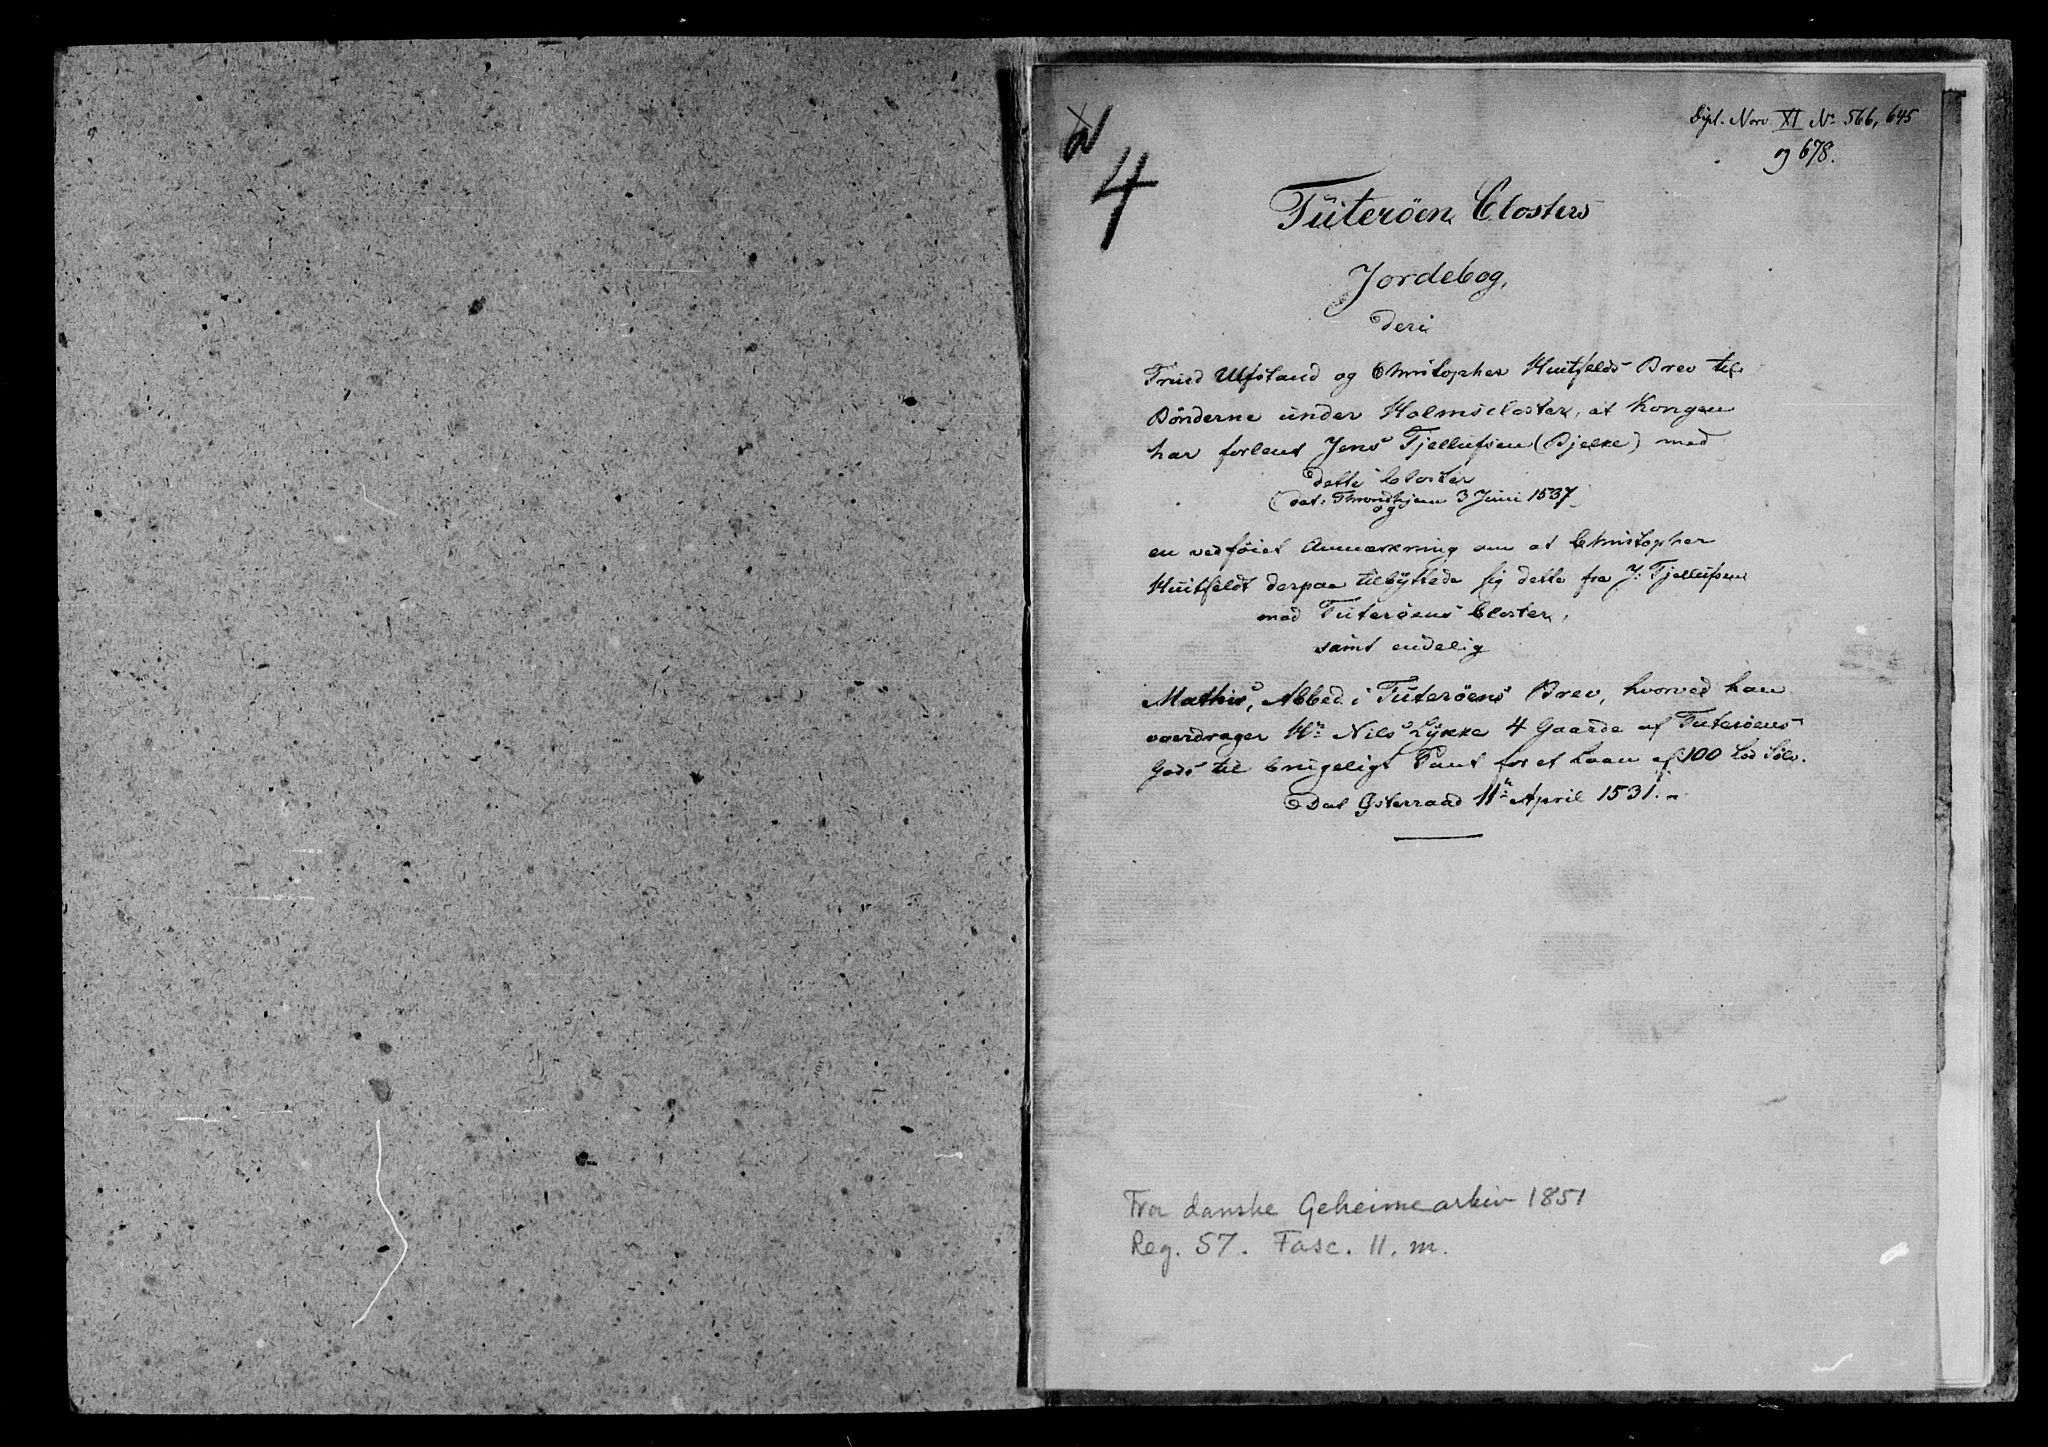 Dipl. Norv XI No 566, 645
og 678.
4
Tüterøen Closters
Jordebog,
deri
Trud Ulfstand og Christopher Huitfelds Brev til
Bönderne under Holmscloster, at Kongen
har forlent Jens Tjellufsen (Bjelke) med
dette Closter
(dat. Throndhjem 3 Juni 1537)
og
en vedføiet Anmærkning om at Christopher
Huitfeldt derpaa tilbÿttede sig dette fra J. Tjellufsen
mod Tuterøens Closter,
samt endelig
Mathis, Abbed i Tüterøens Brev, hvorved han
overdrager Hr Nils Lÿkke 4 Gaarde af Tuterøens
Gods til brugeligt Pant for et Laan af 100 Lod Sölv.
Dat Østerraad 11te April 1531.
Fra danske Geheimearkiv 1851
Reg. 57. Fasc. 11. m.